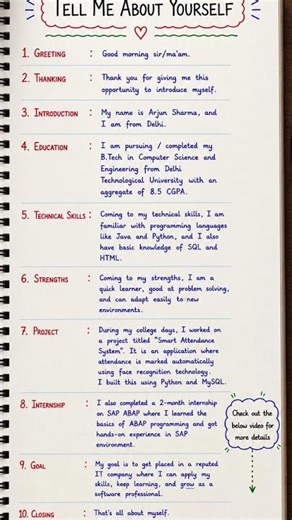 Tell Me About Yourself
1. Greeting : Good morning sir/ma'am.
2. Thanking : Thank you for giving me this
opportunity to introduce myself.
3. Introduction : My name is Arjun Sharma, and
I am from Delhi.
4. Education : I am pursuing / completed my
B.Tech in Computer Science and
Engineering from Delhi
Technological University with an
aggregate of 8.5 CGPA.
5. Technical Skills : Coming to my technical skills, I am
familiar with programming languages
like Java and Python, and I also
have basic knowledge of SQL and
HTML.
6. Strengths : Coming to my strengths, I am a
quick learner, good at problem solving,
and can adapt easily to new
environments.
7. Project : During my college days, I worked on
a project titled "Smart Attendance
System". It is an application where
attendance is marked automatically
using face recognition technology.
I built this using Python and MySQL.
8. Internship : I also completed a 2-month internship
on SAP ABAP where I learned the
basics of ABAP programming and got
hands-on experience in SAP
environment.
Check out the
below video for
more details
9. Goal : My goal is to get placed in a reputed
IT company where I can apply my
skills, keep learning, and grow as a
software professional.
10. Closing : That's all about myself.